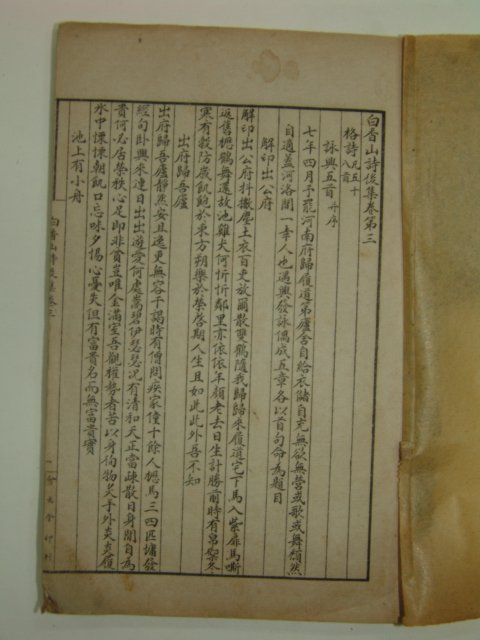 白香山詩後集卷第三
格詩凡五十八首
詠興五首并序
七年四月予罷河南府歸履道第廬舍自給衣儲自充無欲無營或歌或舞頹然
自適蓋河洛間一幸人也遇興發詠偶成五章各以首句命為題目
解印出公府
解印出公府抖擻塵土衣百吏放爾散雙鶴隨我歸歸來履道宅下馬入柴扉馬嘶
返舊櫪鶴舞還故池雞犬何忻忻鄰里亦依依年顏老去日生計勝前時有帛禦冬
寒有穀防歲飢飽於東方朔樂於榮啓期人生且如此此外吾不知
出府歸吾廬
出府歸吾廬靜然安且逸更無客干謁時有僧問疾家僮十餘人櫪馬三四匹慵發
經旬臥興來連日出出遊愛何處嵩碧伊瑟瑟況有清和天正當疎散日身閒自為
貴何必居榮秩心足即非貧豈唯金滿室吾觀權勢者苦以身徇物炙手外炎炎履
冰中慄慄朝飢口忘味夕惕心憂失但有富貴名而無富貴實
池上有小舟
白香山詩後集卷三